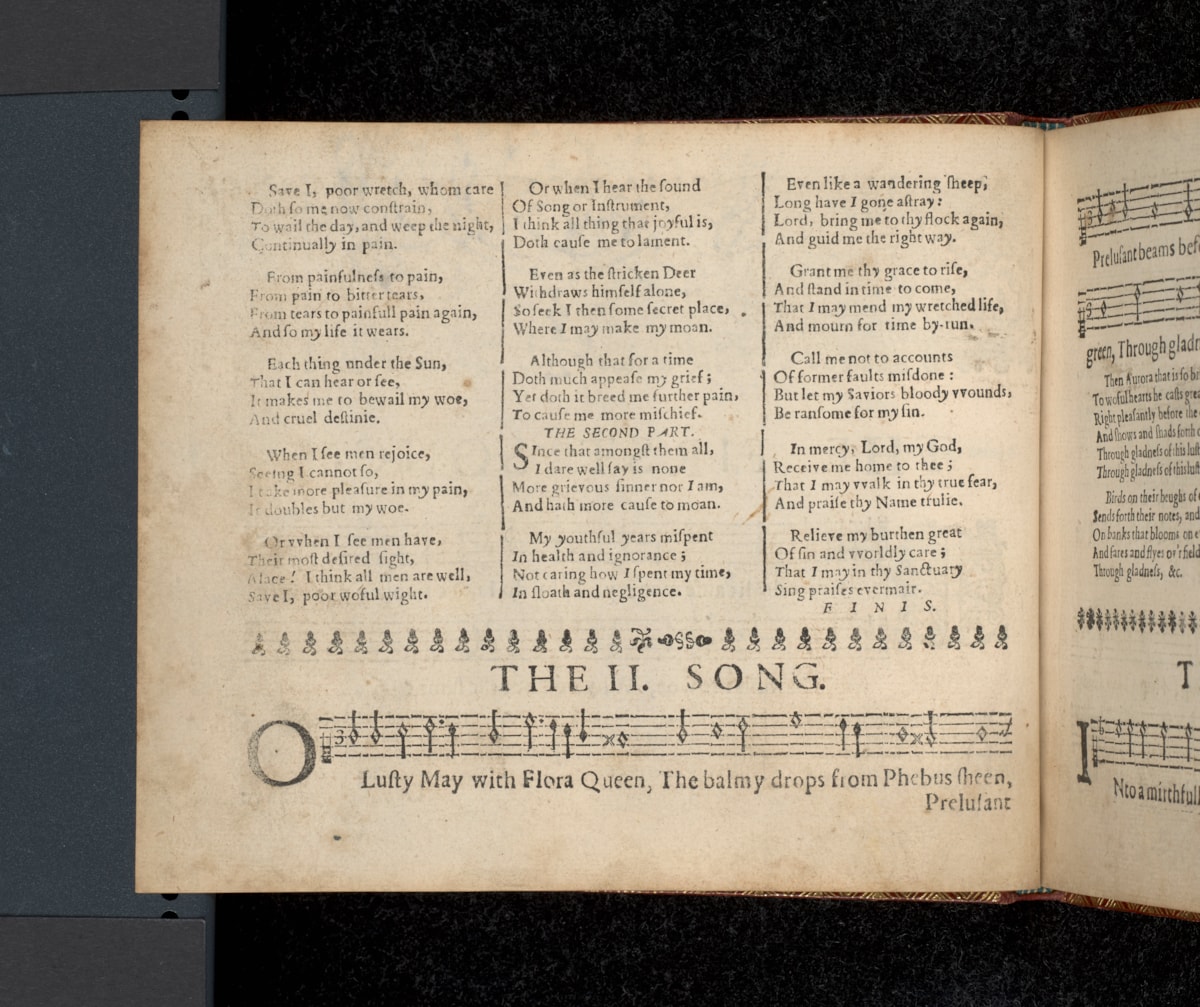 Save I, poor wretch, whom care
Doth so me now conſtrain,
To wail the day, and weep the night,
Continually in pain.
From painfulneſs to pain,
From pain to bitter tears,
From tears to painfull pain again,
And ſo my life it wears.
Each thing under the Sun,
That I can hear or ſee,
It makes me to bewail my woe,
And cruel deſtinie.
When I ſee men rejoice,
Seeing I cannot ſo,
I take more pleaſure in my pain,
It doubles but my woe.
Or vvhen I ſee men have,
Their moſt deſired ſight,
Alace! I think all men are well,
Save I, poor woful wight.
Or when I hear the ſound
Of Song or Inſtrument,
I think all thing that joyful is,
Doth cauſe me to lament.
Even as the ſtricken Deer
Withdraws himſelf alone,
So ſeek I then ſome ſecret place,
Where I may make my moan.
Although that for a time
Doth much appeaſe my grief;
Yet doth it breed me further pain,
To cauſe me more miſchief.
THE SECOND PART.
SInce that amongſt them all,
I dare well ſay is none
More grievous ſinner nor I am,
And hath more cauſe to moan.
My youthful years miſpent
In health and ignorance;
Not caring how I ſpent my time,
In ſloath and negligence.
Even like a wandering ſheep,
Long have I gone aſtray:
Lord, bring me to thy flock again,
And guid me the right way.
Grant me thy grace to riſe,
And ſtand in time to come,
That I may mend my wretched life,
And mourn for time by-run.
Call me not to accounts
Of former faults miſdone:
But let my Saviors bloody vvounds,
Be ranſome for my ſin.
In mercy, Lord, my God,
Receive me home to thee;
That I may vvalk in thy true fear,
And praiſe thy Name trulie.
Relieve my burthen great
Of ſin and vvorldly care;
That I may in thy Sanctuary
Sing praiſes evermair.
FINIS.
THE II. SONG.
O
Luſty May with Flora Queen, The balmy drops from Phebus ſheen,
Preluſant
Preluſant beams
green, Through
Then Aurora that is ſo
To woful hearts he caſts
Right pleaſantly before the
And ſhows and ſhads forth
Through gladneſs of this
Through gladneſs of this
Birds on their beughs of
Sends forth their notes, and
On banks that blooms on
And fares and flyes ov'r
Through gladneſs, &c.
T
I
Nto a